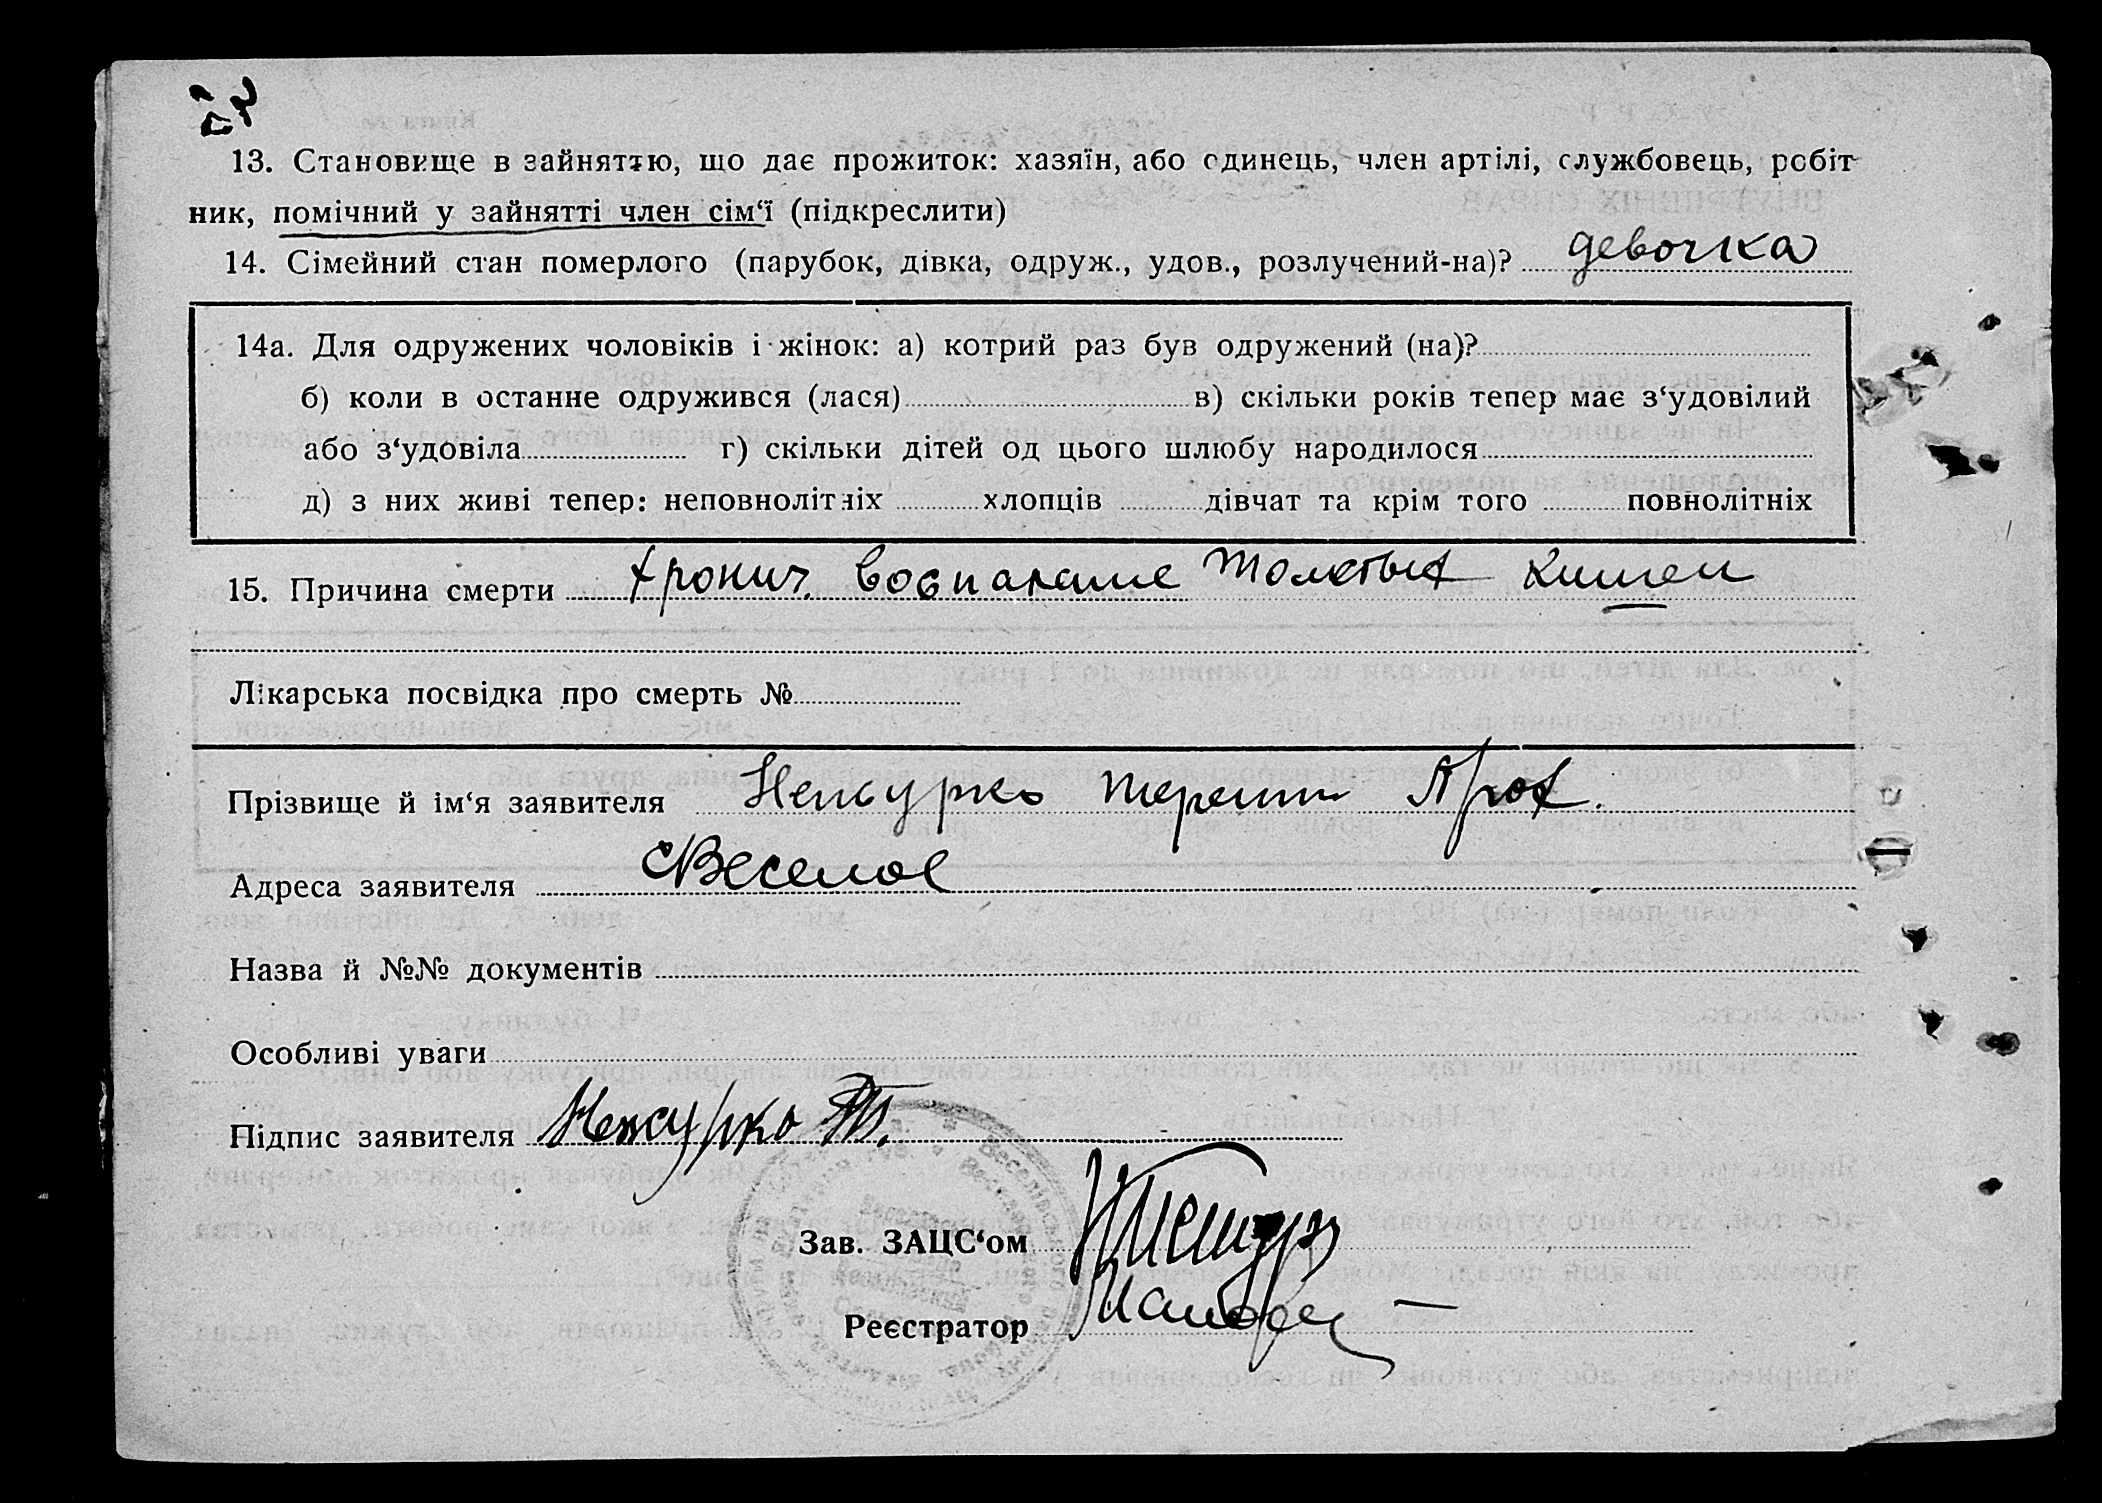 13. Становище в зайняттю, що дає прожиток: хазяїн, або одинець, член артілі, службовець, робіт-
ник, помічний у зайнятті член сім‘ї (підкреслити)
14. Сімейний стан померлого (парубок, дівка, одруж., удов., розлучений-на)? девочка
14а. Для одружених чоловіків і жінок: а) котрий раз був одружений (на)?
б) коли в останне одружився (лася) в) скільки років тепер має з‘удовілий
або з‘удовіла г) скільки дітей од цього шлюбу народилося
д) з них живі тепер: неповнолітніх хлопців дівчат та крім того повнолітніх
15. Причина смерти хронич. воспаление толстых кишек
Лікарська посвідка про смерть №
Прізвище й ім‘я заявителя Непсурко Терентий Прох.
Адреса заявителя с Веселое
Назва й №№ документів
Особливі уваги
Підпис заявителя
Зав. ЗАЦС‘ом
Реєстратор